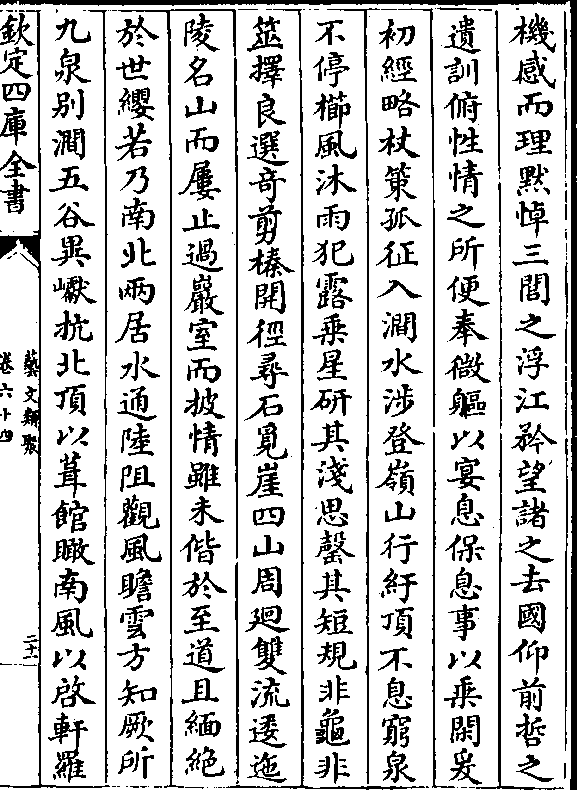 機感而理默悼三閭之浮江矜望諸之去國仰前哲之
遺訓俯性情之所便奉微軀以宴息保息事以乗閑爰
初經略杖策孤征入澗水涉登嶺山行紆頂不息窮泉
不停櫛風沐雨犯露乗星研其淺思罄其短規非龜非
筮擇良選奇剪榛開徑尋石覓崖四山周廻雙流逶迤
陵名山而屢止過巖室而披情雖未偕於至道且緬絶
於世纓若乃南北兩居水通陸阻觀風瞻雲方知厥所
九泉别澗五谷異巘抗北頂以葺館瞰南風以啓軒羅
欽定四庫全書
藝文類聚
卷六十四
二十一